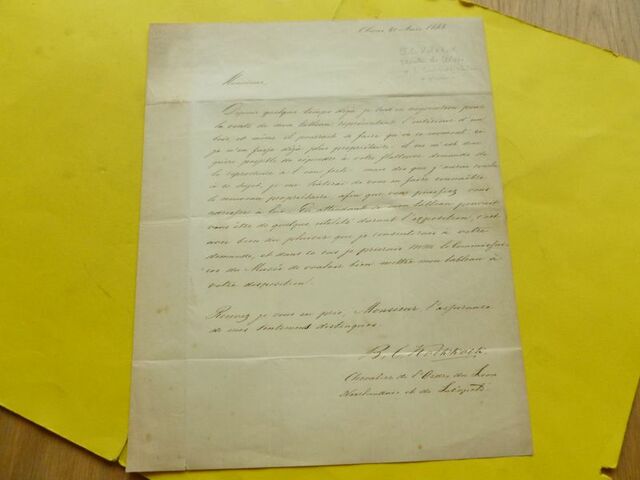 Monsieur,
Depuis quelque temps déjà je suis en négociation pour
la vente de mon tableau représentant l'intérieur d'un
bois et même il pourrait se faire qu'en ce moment ci
je n'en fusse déjà plus propriétaire. il ne m'est donc
guère possible de répondre à votre flatteuse demande de
le reproduire à l'eau forte mais dès que j'aurai
à ce sujet, je me hâterai de vous en faire connaître
le nouveau propriétaire, afin que vous puissiez vous
à lui. En attendant si mon tableau pouvait
vous être de quelque utilité durant l'exposition, c'est
avec bien du plaisir que je consentirais à votre
demande, et dans ce cas je prierais MM. le Commissai
res du Musée de vouloir bien mettre mon tableau à
votre disposition.
Recevez je vous en prie, Monsieur l'assurance
de mes sentimens distingués.
B. C. Koekkoek
Chevalier de l'Ordre du Lion
Néerlandais et de Léopold.